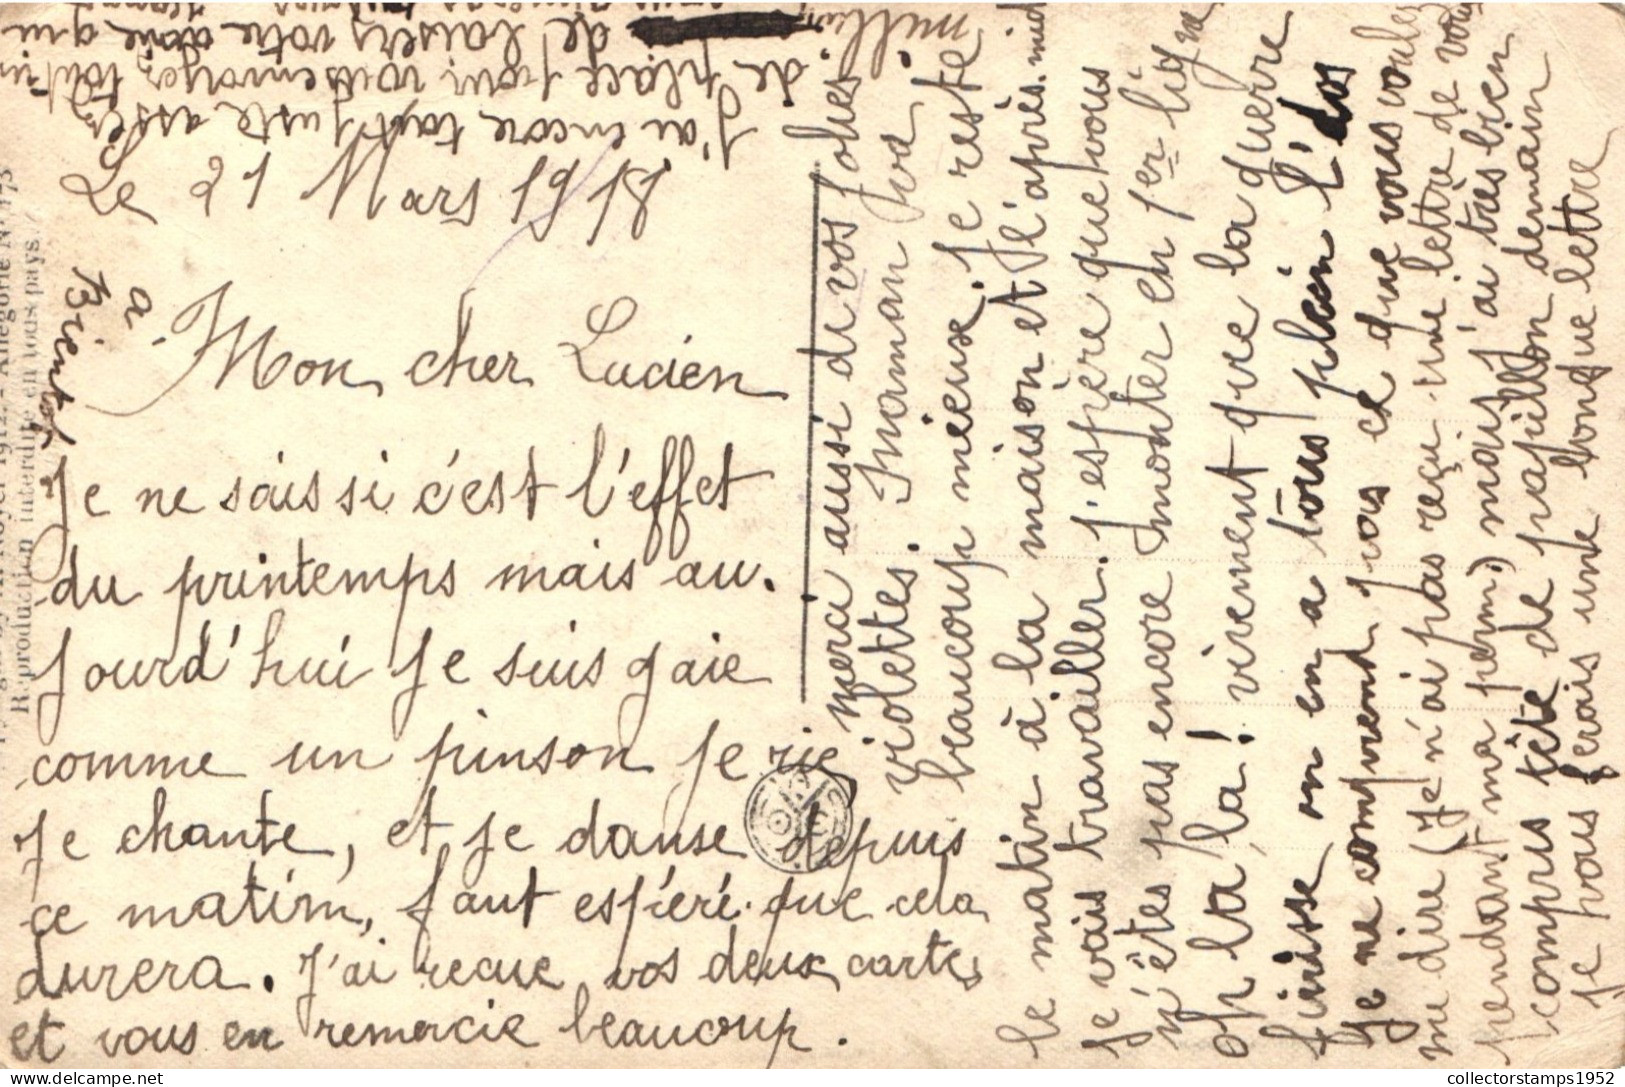 Le 21 Mars 1918
à
Bientôt
Mon cher Lucien
Je ne sais si c'est l'effet
du printemps mais au.
jourd'hui je suis gaie
comme un pinson je rie,
je chante, et je danse depuis
ce matin, faut espéré que cela
durera. J'ai recue vos deux cartes
et vous en remercie beaucoup.
merci aussi du vos jolies
violettes. Maman va
beaucoup mieux. Je reste
le matin à la maison et l'après-midi
je vais travailler. J'espère que vous
n'êtes pas encore monter en 1er ligne
oh la la! vivement que la guerre
finisse on en a tous plein l'dos
Je ne comprend pas ce que vous voulez
me dire (je n'ai pas reçu une lettre de vous
pendant ma perm.) mais j'ai très bien
compris tête de papillon demain
je vous ferais une longue lettre
J'ai encore tout juste assez
de place pour vous envoyer tout un
de baisers votre amie qui
R production interdite en tous pays.
collectorstamps1952